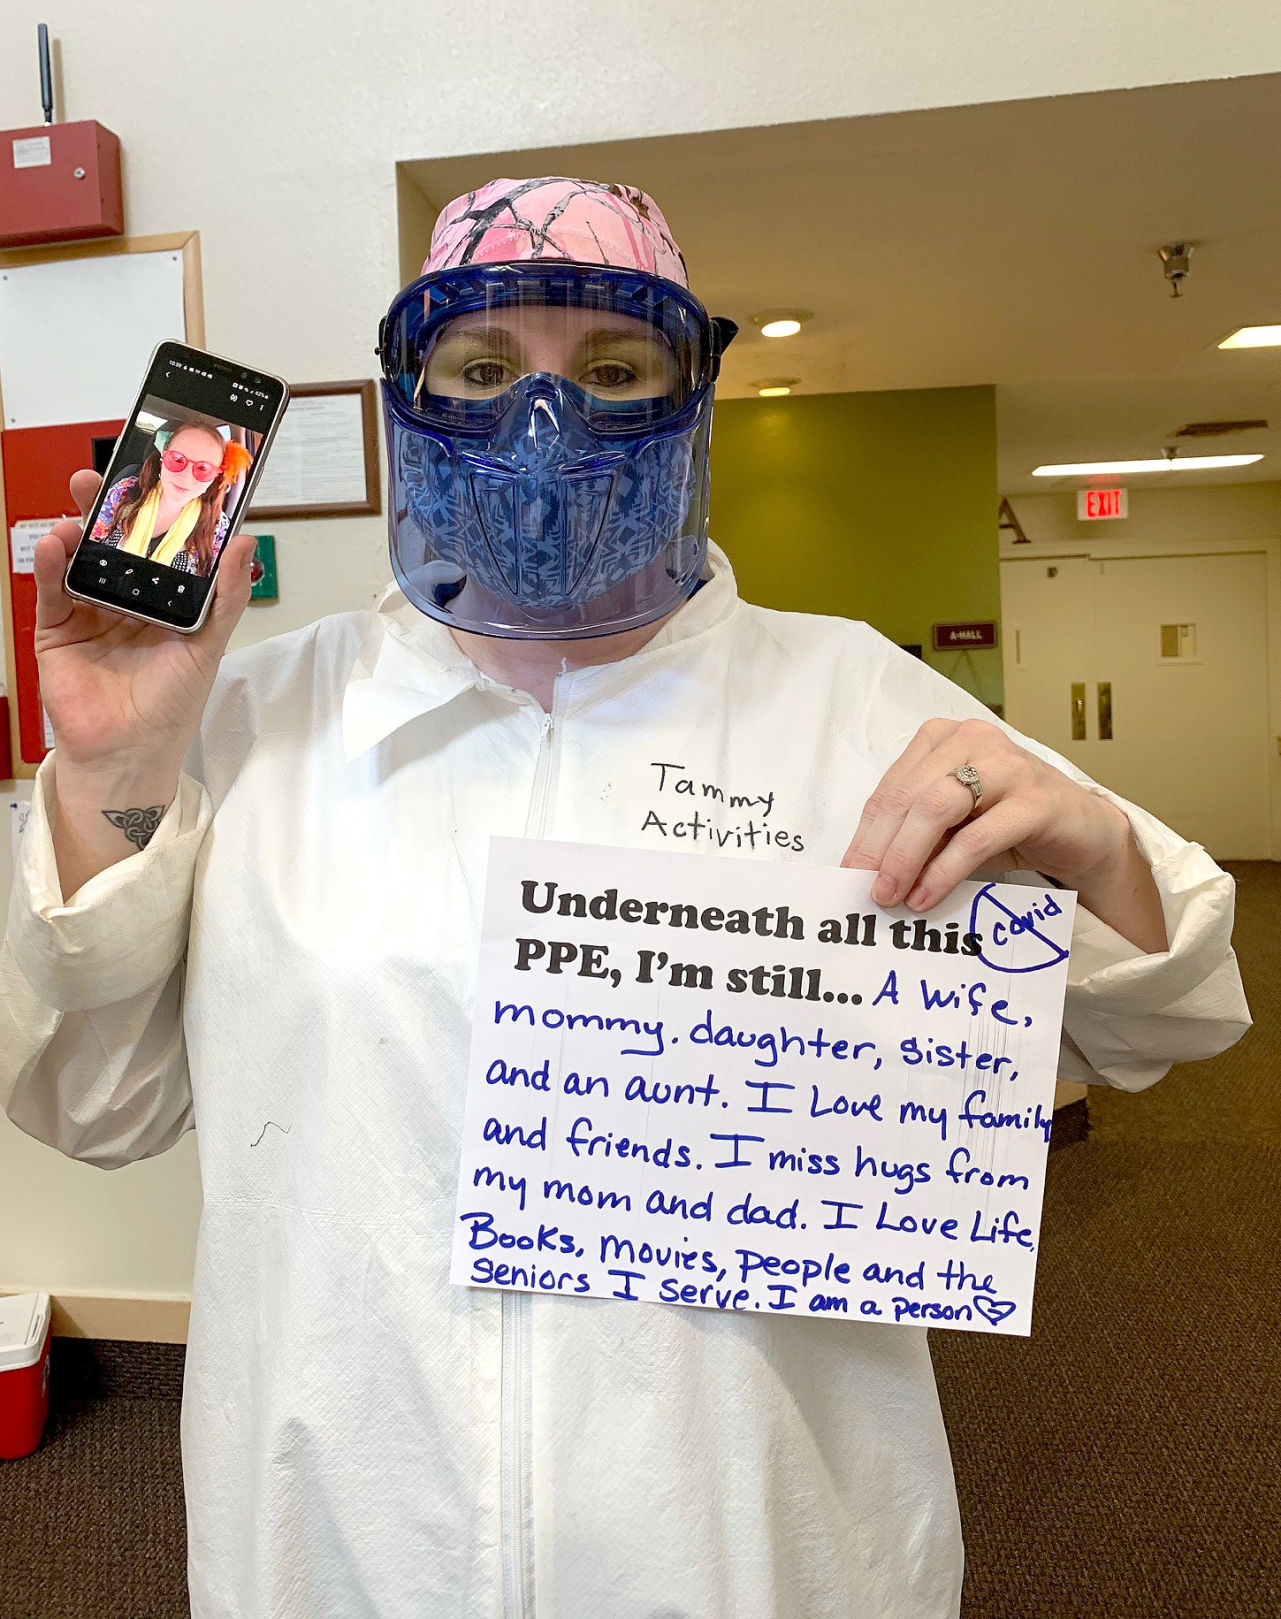 EXIT
A-HALL
A
Tammy
Activities
Underneath all this
covid
PPE, I'm still... A Wife,
mommy. daughter, sister,
and an aunt. I Love my family
and friends. I miss hugs from
my mom and dad. I Love Life,
Books, movies, people and the
seniors I serve. I am a person